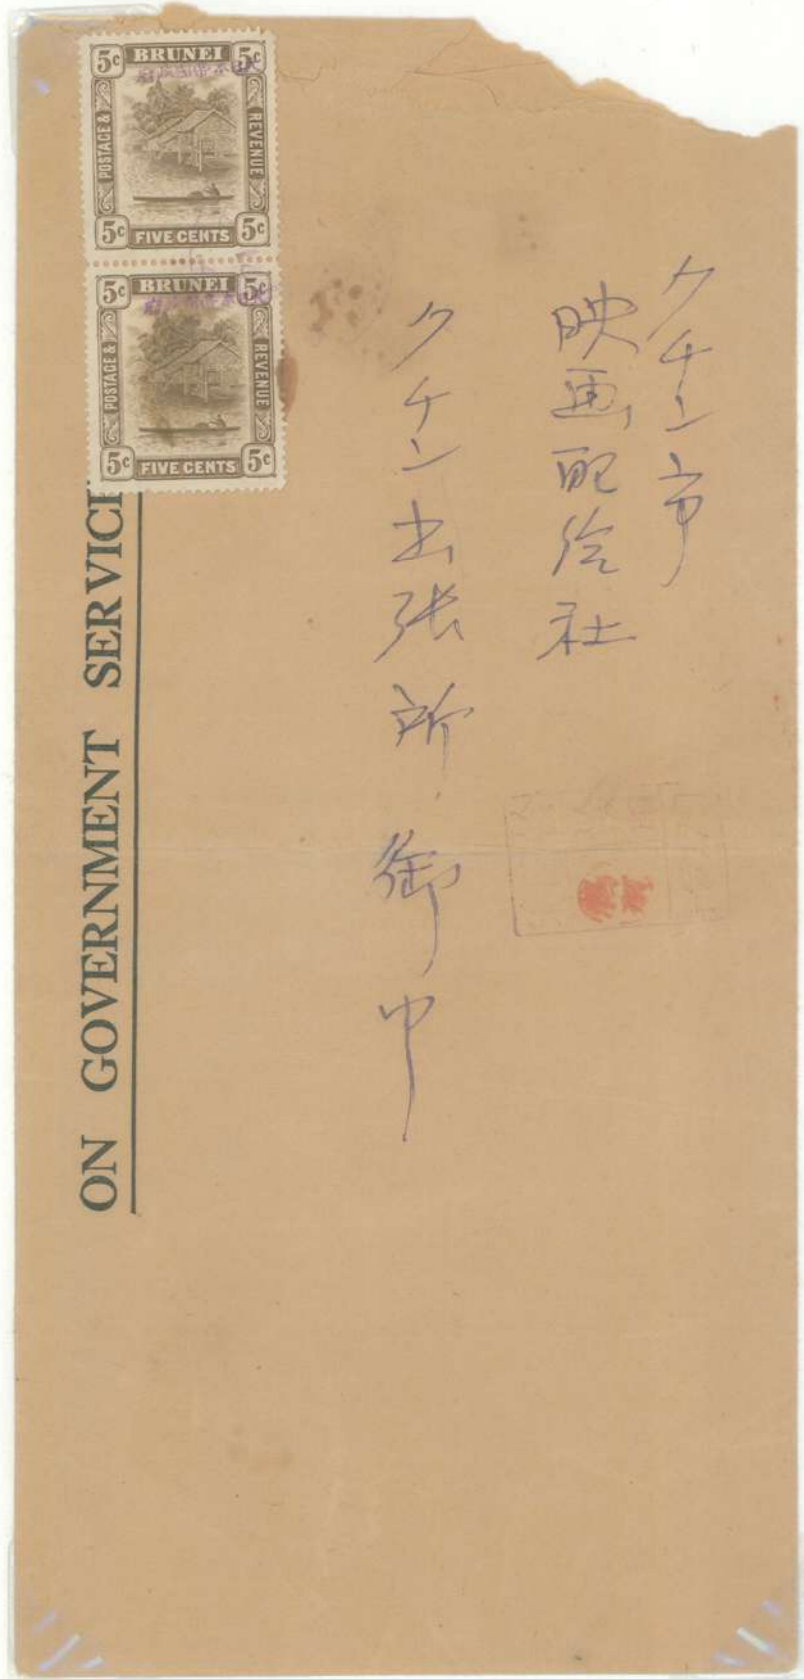 5¢ BRUNEI 5¢
POSTAGE & REVENUE
5¢ FIVE CENTS 5¢
5¢ BRUNEI 5¢
POSTAGE & REVENUE
5¢ FIVE CENTS 5¢
ON GOVERNMENT SERVIC
クチン市
映画配給社
クチン出張所 御中